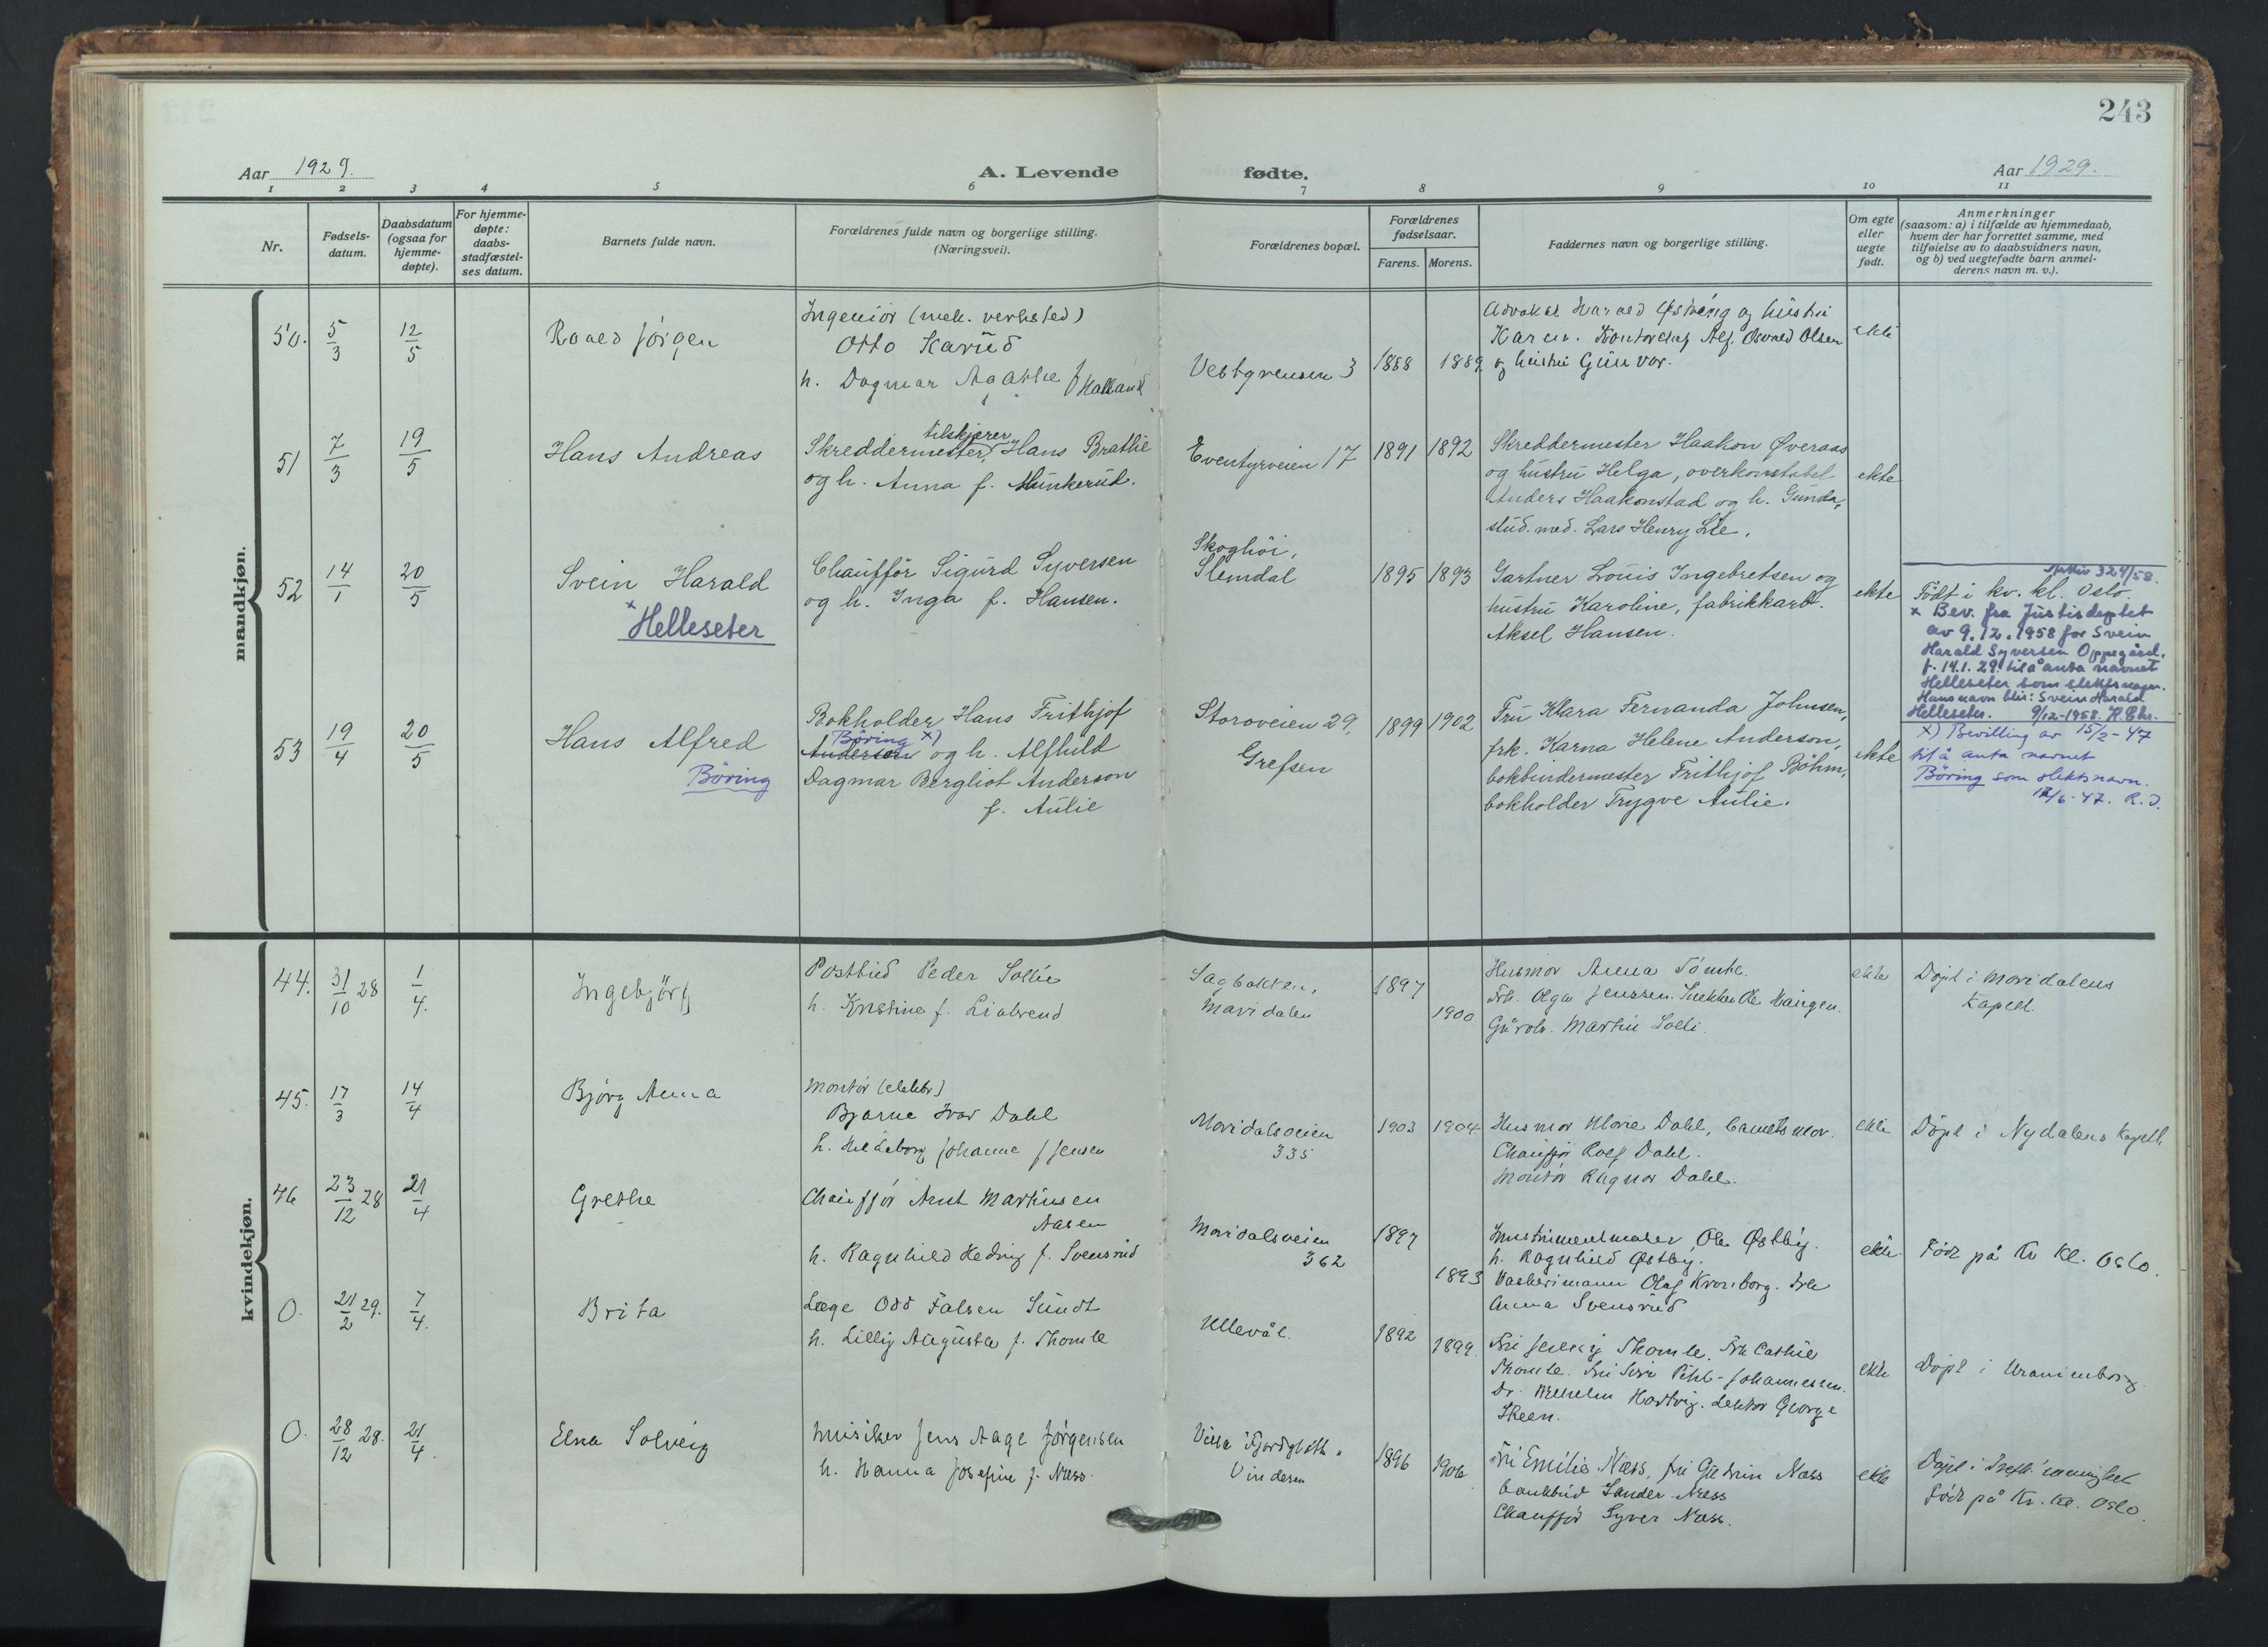 243
Aar 1929.
A. Levende fødte.
Aar 1929.
1 2 3 4 5 6 7 8 9 10 11
Nr.
Fødsels-
datum.
Daabsdatum
(ogsaa for
hjemme-
døpte).
For hjemme-
døpte:
daabs-
stadfæstel-
ses datum.
Barnets fulde navn.
Forældrenes fulde navn og borgerlige stilling.
(Næringsvei).
Forældrenes bopæl.
Forældrenes
fødselsaar.
Farens. Morens.
Faddernes navn og borgerlige stilling.
Om egte
eller
uegte
født.
Anmerkninger
(saasom: a) i tilfælde av hjemmedaab,
hvem der har forrettet samme, med
tilføielse av to daabsvidners navn,
og b) ved uegtefødte barn anmel-
derens navn m. v.).
mandkjøn.
50. 5/3 12/5
Roald Jörgen
Ingeniör (mek. verksted)
Otto Karud
h. Dagmar Agathe f Halland
Vestgrensen 3
1888 1889
Advokat Harald Østvéng og hustru
Karen. Kontorchef Alf. Osvald Olsen
og hustru Gunvor.
ekte
51 7/3 19/5
Hans Andreas
tilskjærer
Skreddermester Hans Brathe
og h. Anna f. Munkerud.
Eventyrveien 17
1891 1892
Skreddermester Haakon Øveraas
og hustru Helga, overkonstabel
Anders Haakonstad og h. Gunda,
stud. med. Lars Henry Lie.
ekte
52 14/1 20/5
Svein Harald
x Helleseter
Chaufför Sigurd Syversen
og h. Inga f. Hansen.
Skoghöi,
Slemdal
1895 1893
Gartner Louis Ingebretsen og
hustru Karoline, fabrikkarb.
Aksel Hansen.
ekte
Arkiv 324/58.
Født i kv. kl. Oslo.
x Bev. fra Justisdeptet
av 9.12.1958 for Svein
Harald Syversen Oppegård,
f. 14.1.29. til å anta navnet
Helleseter som slektsnavn.
Hans navn blir: Svein Harald
Helleseter. 9/12-1958.
53 19/4 20/5
Hans Alfred
Böring
Bokholder Hans Frithjof
Böring x)
Anderson og h. Alfhild
Dagmar Bergliot Anderson
f. Aulie
Storoveien 29,
Grefsen
1899 1902
Fru Klara Fernanda Johnsen,
frk. Karna Helene Anderson,
bokbindermester Frithjof Böhm,
bokholder Trygve Aulie.
ekte
x) Bevilling av 15/2-47
til å anta navnet
Böring som slektsnavn.
12/6-47. R.J.
kvindekjøn.
44. 31/10 28 1/4.
Ingebjörg
Postbud Peder Sollie
h. Kristine f. Liabrend
Sagbakken,
Maridalen
1897
1900
Husmor Anna Tömte.
Frk. Olga Jenssen. Snekker Ole Haugen.
Gårdb. Martin Solli.
ekte
Döpt i Maridalens
kapell.
45. 17/3 14/4
Bjørg Anna
Montör (elektr)
Bjarne Ivar Dahl
h. Hildeborg Johanne f Jensen
Maridalsveien
335
1903 1904
Husmor Marie Dahl, barnets mor.
Chauffør Rolf Dahl.
Montør Ragnar Dahl.
ekte
Döpt i Nydalens kapell.
46 23/12 28 21/4
Grethe
Chauffør Arnt Martinsen
Aasen
h. Ragnhild Hedvig f. Svensrud
Maridalsveien
362
1897
1893
Instrumentmaker Ole Østby.
h. Ragnhild Østby.
Vaskerimann Olaf Kronborg. Frk
Anna Svensrud
ekte.
Född på Kv Kl. Oslo.
O. 21/2 29. 7/4.
Brita
Læge Odd Falsen Sundt
h. Lilly Augusta f. Thomle
Ullevål.
1892
1899.
Fru Jenny Thomle. Frk Cathie
Thomle. Fru Siri Pihl-Johannessen.
Dr. Wilhelm Hartvig. Lektor George
Skeen.
ekte
Döpt i Uranienborg.
O. 28/12 28. 21/4.
Elna Solveig
Musiker Jens Aage Jörgensen
h. Hanna Josefine f. Næss.
Villa "Fjordgløtt"
Vinderen
1896 1906
Fru Emilie Næss, fru Gudrun Næss
bankbud Sander Næss
Chauffør Syver Næss.
ekte
Döpt i
Född på Kv. Kl. Oslo.